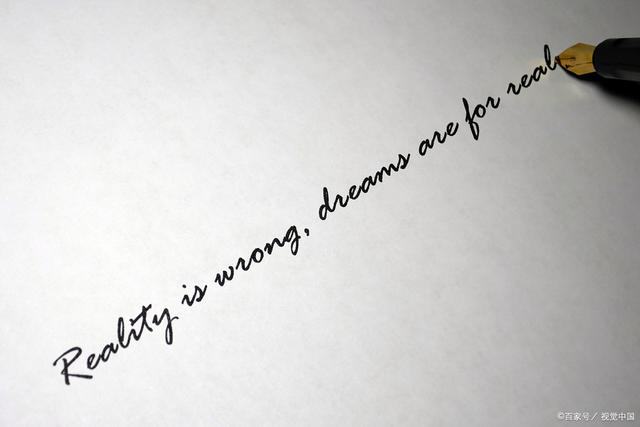 Reality is wrong, dreams are for real
©百家号／视觉中国